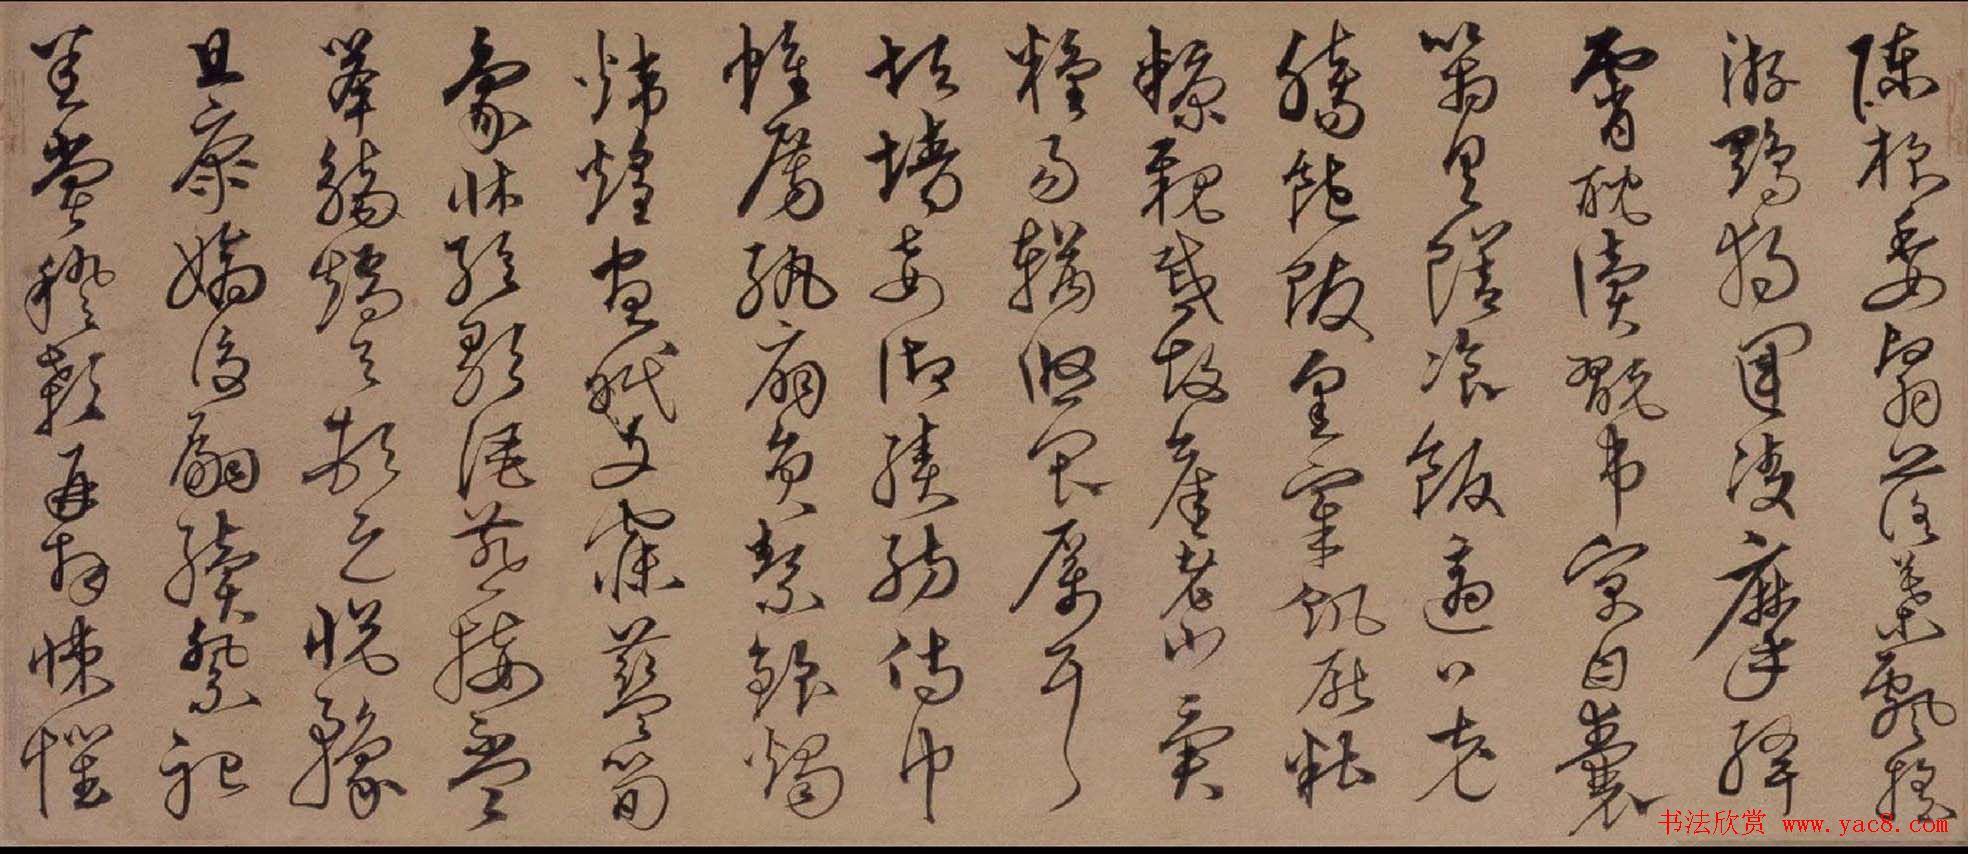 陳根委翳落葉飄搖
游鵾獨運凌摩絳
霄耽讀翫市寓目囊
箱具膳飡飯適口充
腸飽飫烹宰飢厭糟
糠親戚故舊老少異
糧易輶攸畏屬耳
垣牆妾御績紡侍巾
帷房紈扇員潔銀燭
煒煌晝眠夕寐藍筍
象床絃歌酒讌接盃
舉觴矯手頓足悅豫
且康嫡後嗣續祭祀
蒸嘗稽顙再拜悚懼
书法欣赏 www.yac8.com